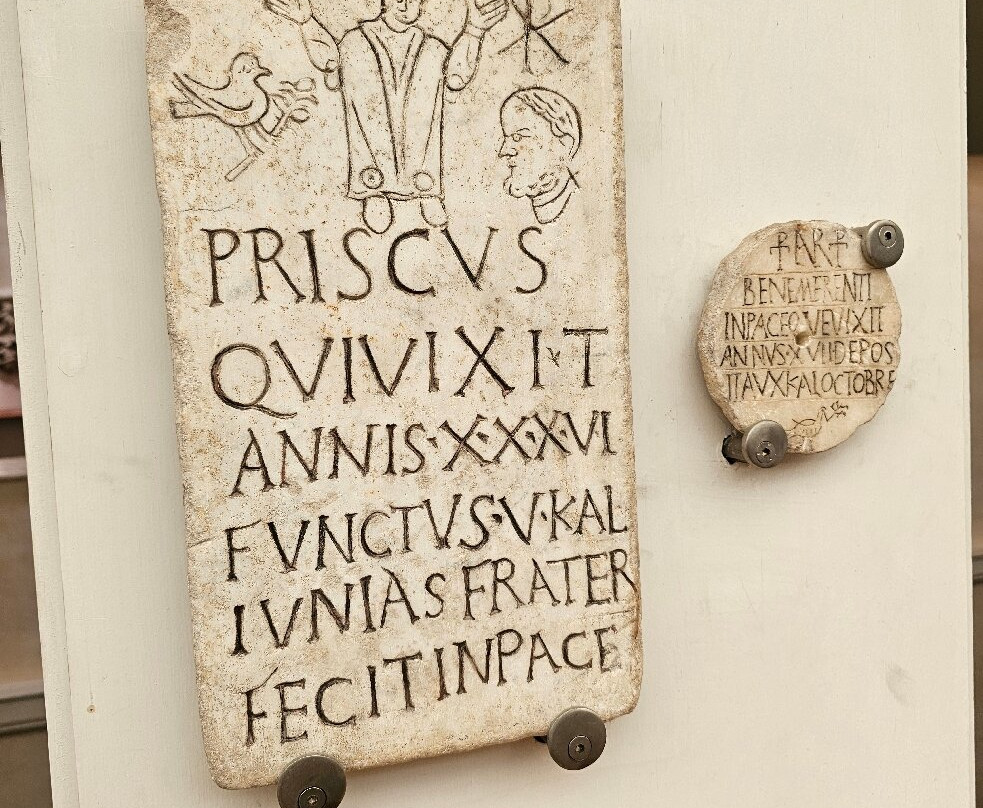 PRISCVS
QVIVIXI·T
ANNIS·X·X·X·VI
FUNCTVS·V·KAL
IVNIAS FRATER
FECITINPACE
BENEMERENTI
INPACEQVEVIXIT
ANNVS·XVIIDEPOS
ITAVXKALOCTOBRE